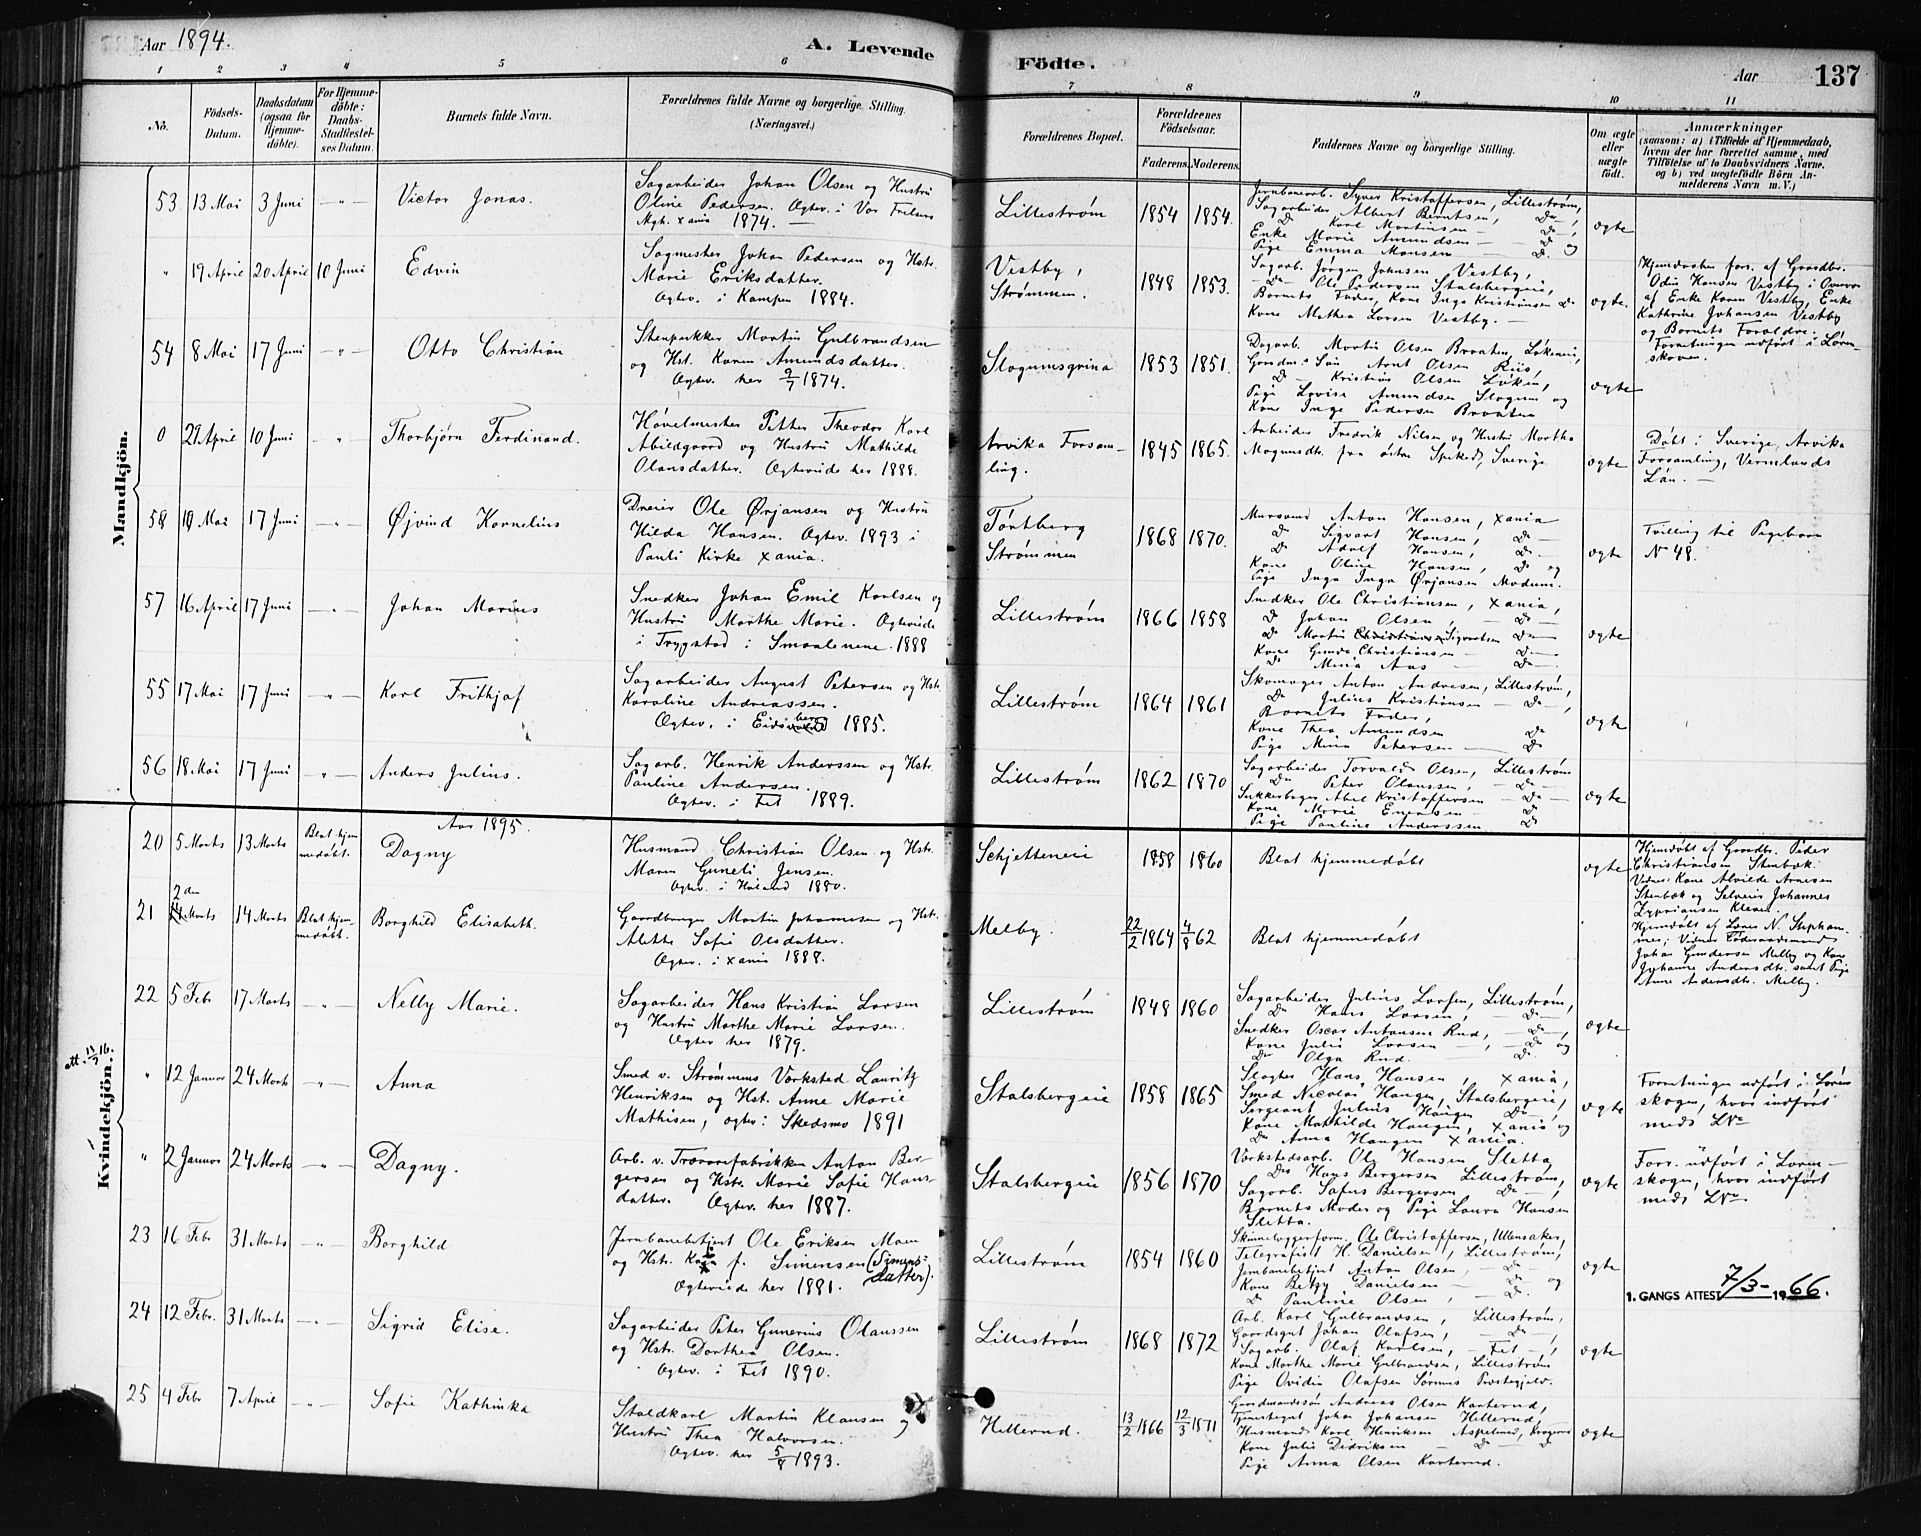 Aar 1894.
A. Levende
Födte.
Aar
137
1 2 3 4 5 6 7 8 9 10 11
No.
Födsels-
Datum.
Daabsdatum
(ogsaa for
Hjemme-
döbte).
For Hjemme-
döbte:
Daabs-
Stadfæstel-
ses Datum.
Barnets fulde Navn.
Forældrenes fulde Navne og borgerlige Stilling.
(Næringsvei.)
Forældrenes Bopæl.
Forældrenes
Födselsaar.
Faderens.
Moderens.
Faddernes Navne og borgerlige Stilling.
Om ægte
eller
uægte
födt.
Anmærkninger
(saasom: a) i Tilfælde af Hjemmedaab,
hvem der har forrettet samme, med
Tilföielse af to Daabsvidners Navne,
og b) ved uægtefödte Börn An-
melderens Navn m. V.)
Mandkjön.
53 13 Mai 3 Juni — " — Victor Jonas.
Sagarbeider Johan Olsen og Hustru
Oline Pedersen. Ægtev. i Vor Frelsers
Mgh. Xania 1874. —
Lillestrøm 1854 1854.
Jernbanearb. Syver Kristoffersen, Lillestrøm,
Sagarbeider Albert Berntsen, Do,
Do Karl Martinsen — Do,
Enke Marie Amundsen — Do og
Pige Emma Monsen — Do.
ægte
" 19 April 20 April 10 Juni Edvin
Sagmester Johan Pedersen og Hstr.
Marie Eriksdatter.
Ægtev. i Kampen 1884.
Vestby,
Strømmen. 1848 1853.
Sagarb. Jørgen Johnsen Vestby,
— Do — Ole Pedersen Stalsbergeie,
Barnets Fader, Kone Inga Kristiansen Do
Kone Mathea Larsen Vestby. —
ægte.
Hjemdaaben forr. af Gaardbr.
Odin Hansen Vestby i Overvær
af Enke Karen Vestby, Enke
Kathrine Johansen Vestby
og Barnets Forældre.
Forretningen udført i Løren-
skoven.
54 8 Mai 17 Juni — " — Otto Christian
Stenpukker Martin Gulbrandsen
og Hst. Karen Amundsdatter.
Ægtev. her 9/7 1874.
Slogumsgrina 1853 1851.
Dagarb. Martin Olsen Braaten, Løkeneie,
Gaardm. Søn Arnt Olsen Riis,
Do — Kristian Olsen Løken,
Pige Lovise Amundsen Slogum og
Kone Inge Pedersen Braaten
ægte
0 29 April 10 Juni — " — Thorbjørn Ferdinand.
Høvelmester Petter Theodor Karl
Abildgaard og Hustru Mathilde
Olausdatter. Ægteviede her 1888.
Arvika Forsam-
ling. 1845 1865.
Arbeider Fredrik Nilsen og Hustru Martha
Magnusdt. fra östra Spiked, Sverige
ægte
Døbt i Sverige, Arvika
Forsamling, Vermlands
Län. —
58 19 Mai 17 Juni — " — Øjvind Kornelius
Dreier Ole Ørjansen og Hustru
Hilda Hansen. Ægtev. 1893 i
Pauli Kirke Xania.
Tørtberg
Strømmen 1868 1870.
Mursvend Anton Hansen, Xania
Do Sigvart Hansen, Do —
Do Adolf Hansen, Do —
Kone Oline Hansen, Do og
Pige Inga Inga Ørjansen Modum.
ægte
Tvilling til Pigebarn
No 48.
57 16 April 17 Juni — " — Johan Marius
Snedker Johan Emil Karlsen og
Hustru Marthe Marie. Ægteviede
i Trygstad i Smaalenene 1888
Lillestrøm 1866 1858
Snedker Ole Christiansen, Xania,
Do Johan Olsen, — Do —
Do Martin Christiansen Sigvartsen Do —
Kone Gunda Christiansen — Do —
Do Mina Aas — Do —.
ægte
55 17 Mai 17 Juni — " — Karl Frithjof
Sagarbeider August Petersen og Hst.
Karoline Andreassen.
Ægtev. i Eidsberg 1885.
Lillestrøm 1864 1861
Skomager Anton Andresen, Lillestrøm,
Do Julius Kristiansen — Do —,
Barnets Fader,
Kone Thea Amundsen Do
Pige Mina Petersen — Do
ægte
56 18 Mai 17 Juni — " — Anders Julius.
Sagarb. Henrik Anderssen og Hst.
Pauline Andersen.
Ægtev. i Fet 1889.
Lillestrøm 1862 1870
Sagarbeider Torvald Olsen, Lillestrøm
Do Peter Olaussen, — Do —
Sukkerbager Abel Kristoffersen — Do —
Kone Marie Enersen — Do
Pige Pauline Anderssen Do
ægte
Kvindekjön.
att. 11/7 16.
Aar 1895.
20 5 Marts 13 Marts Blot hjem
medøbt. Dagny
Husmand Christian Olsen og Hst.
Maren Guneli Jensen.
Ægtev. i Høland 1880.
Schjetteneie 1858 1860 Blot hjemmedøbt ægte
Hjemdøbt af Gaardbr. Peder
Christiansen Stenbæk.
Vidner: Kone Alvilde Arnesen
Stenbæk og Selveier Johannes
Zyprianse Kleven.
21 2den Marts 14 Marts Blot hjem-
medøbt. Borghild Elisabeth.
Gaardbruger Martin Johannesen og Hst.
Alette Sofie Olsdatter.
Ægtev. i Xania 1888.
Melby. 22/2 1864 4/8 62 Blot hjemmedøbt
Hjemdøbt af Lærer N. Stephan-
sen; Vidner Føderaadsmand
Johan Gundersen Melby og Kone
Johanne Andersdt. samt Pige
Anne Andersdt. Melby.
22 5 Febr 17 Marts — " — Nelly Marie.
Sagarbeider Hans Kristian Larsen
og Hustru Marthe Marie Larsen.
Ægtev her 1879.
Lillestrøm 1848 1860
Sagarbeider Julius Larsen, Lillestrøm,
Do Hans Larsen, — Do —
Snedker Oscar Antonsen Rud, — Do —,
Kone Julie Larsen — , — Do og
Do Olga Rud. — Do.
ægte
" 12 Januar 24 Marts — " — Anna
Smed v. Strømmens Værksted Lauritz
Henriksen og Hst. Anne Marie
Mathisen, ægtev. i Skedsmo 1891
Stalsbergeie 1858 1865
Slagter Hans Hansen, Xania,
Smed Nicolai Haugen, Stalsbergeie,
Sergeant Julius Haugen Do —,
Kone Mathilde Haugen, Xania og
Do Anna Haugen Xania.
ægte
Forretningen udført i Løren
skogen, hvor indført
meds LNo
" 2 Januar 24 Marts — " — Dagny.
Arb. v. Trævarefabrikken Anton Ber-
gersen og Hst. Marie Sofie Hans-
datter. Ægtev. her 1887.
Stalsbergeie 1856 1870
Værkstedsarb. Ole Hansen Sletta
Do Hans Bergersen Lillestrøm,
Sagarb. Sofus Bergersen Do —,
Barnets Moder og Pige Laura Hansen
Sletta.
ægte
Forr. udført i Løren-
skogen, hvor indført
meds LNo
23 16 Febr 31 Marts — " — Borghild
Jernbanebetjent Ole Eriksen Moen
og Hst. f. Simensen (Simens-
datter).
Ægteviede her 1881.
Lillestrøm 1854 1860
Skinnelæggerform. Ole Christoffersen, Ullensaker,
Telegrafist H. Danielsen, Lillestrøm,
Jernbanebetjent Anton Olsen, — Do —
Kone Betzy Danielsen — Do og
Do Pauline Olsen, — Do.
ægte
1. GANGS ATTEST 7/3 - 1966.
24 12 Febr. 31 Marts — " — Sigrid Elise.
Sagarbeider Peter Gunerius Olaussen
og Hst. Dorthea Olsen.
Ægtev. i Fet 1890.
Lillestrøm 1868 1872
Arb. Karl Gulbrandsen, Lillestrøm,
Gaardsgut Johan Olafsen, — Do —
Sagarb. Olaf Karlsen, — Fet —,
Kone Marthe Marie Gulbrandsen, Lillestrøm
Pige Ovidia Olafsen Sørums Præstegjeld.
ægte
25 4 Febr 7 April — " — Sofie Kathinka
Staldkarl Martin Klausen og
Hustru Thea Halvorsen.
Ægtev. her 5/8 1893.
Hellerud. 13/2 1866 12/3 1871
Gaardmandssøn Andreas Olsen Karterud,
Tjenestegut Johan Johansen Hellerud,
Husmand Karl Henriksen Aspelund,
Kone Julie Didriksen — Do — Do
Pige Anna Olsen Karterud.
ægte